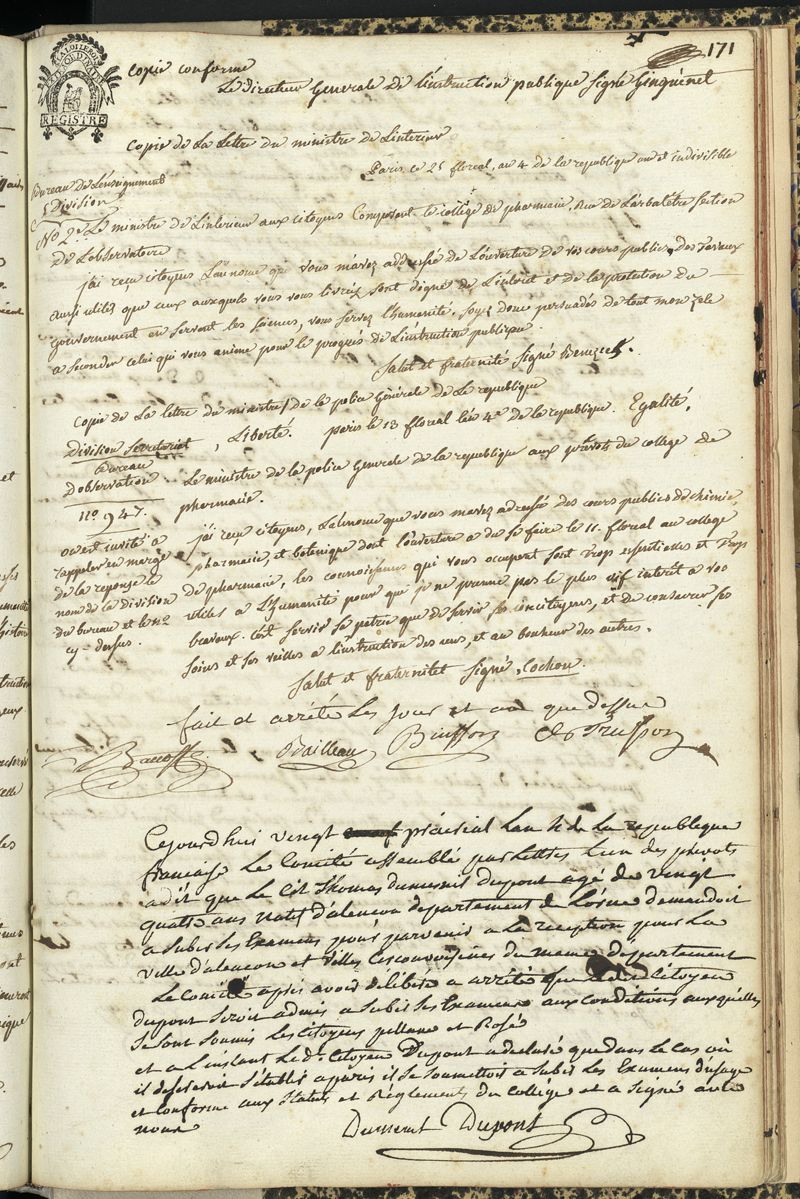 171
LA LOI LE ROI
REGISTRE
copie conforme
Le directeur Generale de L'instruction publique signé Ginguenet
Copie de La Lettre du ministre de Linterieur
Paris ce 25 floreal, an 4 de la republique une et indivisible
Bureau de Lenseignement
5 Division
No 2. Le ministre de L'interieur aux citoyens Composant le collége de pharmacie, Rue de Larbalétre section
de L'observatoire
j'ai reçu citoyens L'annonce que vous m'avez addressée de L'ouverture de vos cours publics, des Travaux
aussi utiles que ceux auxquels vous vous livrez sont digne de L'interet et de la protection du
gouvernement en servant les sciences, vous servez l'humanité. soyez donc persuadés de tout mon zele
a seconder celui qui vous anime pour le progrès de L'instruction publique.
Salut et fraternité signé Benezech.
Copie de La lettre du ministre de la police Générale de La republique
Division Secretariat, Liberté. paris le 13 floreal l'an 4e de la republique. Egalité.
Bureau
D'observation
no. 947.
Le ministre de la police Generale de la republique aux prévots du college de
pharmacie.
on est invité a
rappeler en marge
de la reponse le
nom de la division
du bureau et le no
cy-dessus.
j'ai reçu citoyens, L'annonce que vous m'avez adressée des cours publics de chimie,
pharmacie, et botanique dont l'ouverture a du se faire le 11. floreal au college
de pharmacie, les connoissances qui vous occupent sont trop essentielles et trop
utiles a L'humanité pour que je ne prenne pas le plus vif interêt a vos
travaux. C'est servir sa patrie que de servir ses concitoyens, et de consacrer ses
soins et ses veilles a l'instruction des uns, et au bonheur des autres.
Salut et fraternitet signé, Cochon.
fait et arrété Les jour et an que dessus
Bacoffe Bailleau Buisson Ch Trusson
Cejourd'hui vingt prairial L'an 4 de La republique
française Le Comité assemblé par Lettres L'un des prevots
a dit que Le Cit Thomas Dumesnil Dupont agé de vingt
quatre ans natif d'alencon departement de L'orne demandoit
a subir ses Examens pour parvenir a La reception pour La
ville d'alencon et villes circonvoisines du meme departement
Le Comité après avoir déliberé a arrété que Citoyen
dupont seroit admis a subir ses Examens aux conditions auxquelles
se sont soumis Les citoyens pellane et Rosé
et a L'instant Le dt. Citoyen Dupont a declaré que dans Le cas où
il desireroit s'établir a paris il se soumettoit a subir Les Examens d'usage
et Conforme aux Statuts et Réglements du College et a signé avec
nous
Dumenil Dupont